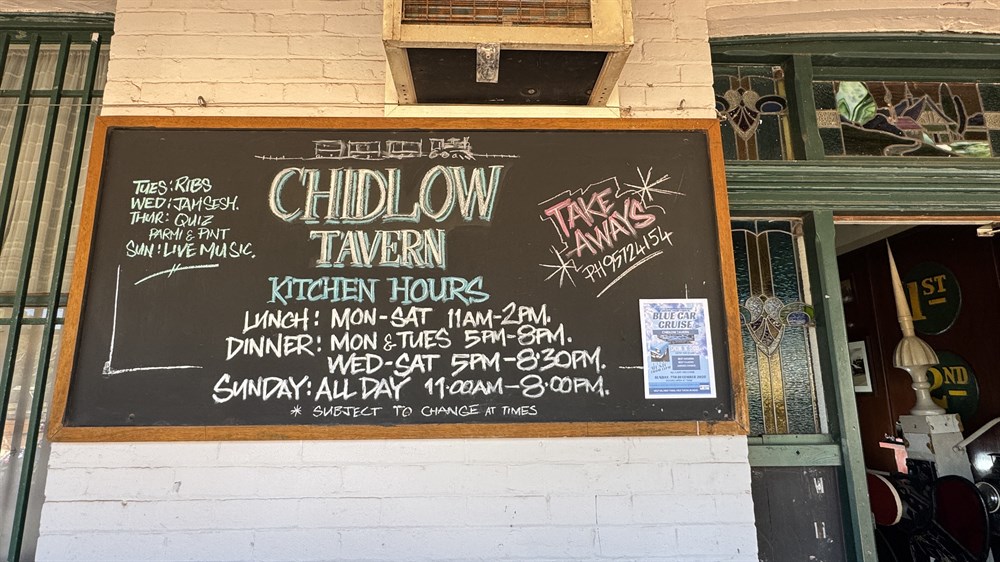 TUES: RIBS
WED: JAM SESH.
THUR: QUIZ
PARMI & PINT
SUN: LIVE MUSIC.
CHIDLOW
TAVERN
KITCHEN HOURS
LUNCH: MON-SAT 11AM-2PM.
DINNER: MON & TUES 5PM-8PM.
WED-SAT 5PM-8:30PM.
SUNDAY: ALL DAY 11:00AM-8:00PM.
* SUBJECT TO CHANGE AT TIMES
TAKE
AWAYS
PH 95724154
BLUE CAR
CRUISE
1ST
2ND